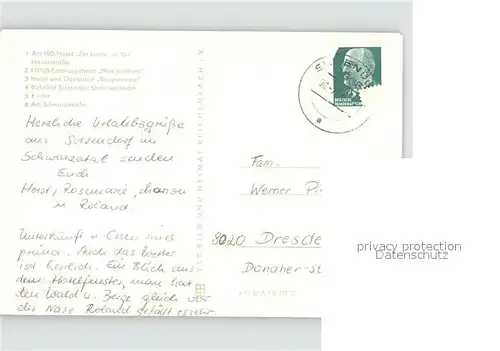 1 Am HO-Hotel „Zur Linde“ in der
Hauptstraße
3 Hotel und Gaststätte „Bergterrasse“
4 Bahnhof Sitzendorf-Unterweißbach
6 Am Schwimmbad
VERLAG BILD UND HEIMAT REICHENBACH I. V.
DEUTSCHE
DEMOKRATISCHE
Herzliche Urlaubsgrüße
aus Sitzendorf im
Schwarzatal senden
Euch
Horst, Rosemarie,
u. Roland.
Unterkunft u. Essen sind
prima. Auch das Wetter
ist herrlich. Ein Blick aus
dem Hotelfenster, man hat
den Wald u. Berge gleich vor
der Nase Roland gefällt es sehr.
Fam.
Werner
8020 Dresde
Donaher-st
privacy protection
Datenschutz